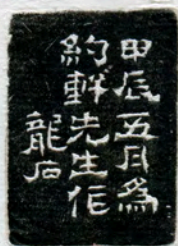 甲辰五月為
約軒先生作
龍石